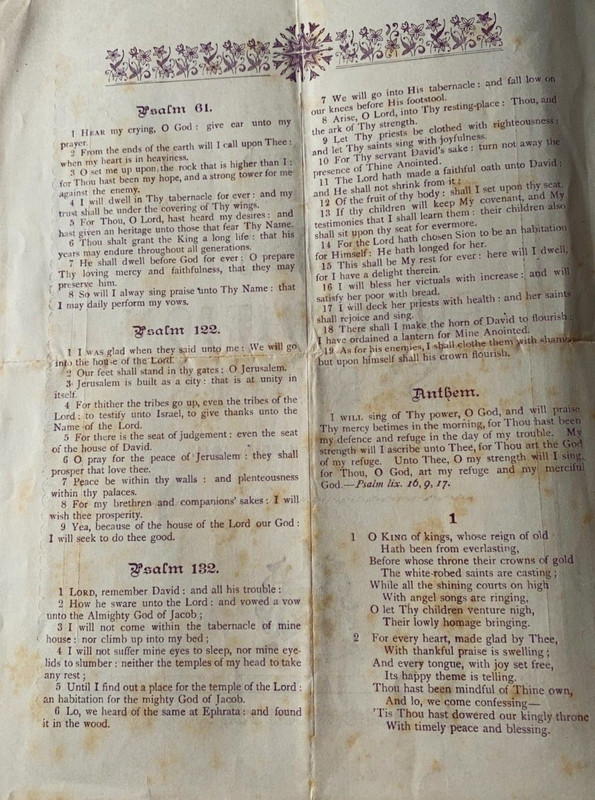 Psalm 61.
1 HEAR my crying, O God : give ear unto my
prayer.
2 From the ends of the earth will I call upon Thee :
when my heart is in heaviness.
3 O set me up upon the rock that is higher than I :
for Thou hast been my hope, and a strong tower for me
against the enemy.
4 I will dwell in Thy tabernacle for ever : and my
trust shall be under the covering of Thy wings.
5 For Thou, O Lord, hast heard my desires : and
hast given an heritage unto those that fear Thy Name.
6 Thou shalt grant the King a long life : that his
years may endure throughout all generations.
7 He shall dwell before God for ever : O prepare
Thy loving mercy and faithfulness, that they may
preserve him.
8 So will I alway sing praise unto Thy Name : that
I may daily perform my vows.
Psalm 122.
1 I WAS glad when they said unto me : We will go
into the house of the Lord.
2 Our feet shall stand in thy gates : O Jerusalem.
3 Jerusalem is built as a city : that is at unity in
itself.
4 For thither the tribes go up, even the tribes of the
Lord : to testify unto Israel, to give thanks unto the
Name of the Lord.
5 For there is the seat of judgement : even the seat
of the house of David.
6 O pray for the peace of Jerusalem : they shall
prosper that love thee.
7 Peace be within thy walls : and plenteousness
within thy palaces.
8 For my brethren and companions' sakes : I will
wish thee prosperity.
9 Yea, because of the house of the Lord our God :
I will seek to do thee good.
Psalm 132.
1 LORD, remember David : and all his trouble :
2 How he sware unto the Lord : and vowed a vow
unto the Almighty God of Jacob ;
3 I will not come within the tabernacle of mine
house : nor climb up into my bed ;
4 I will not suffer mine eyes to sleep, nor mine eye-
lids to slumber : neither the temples of my head to take
any rest ;
5 Until I find out a place for the temple of the Lord :
an habitation for the mighty God of Jacob.
6 Lo, we heard of the same at Ephrata : and found
it in the wood.
7 We will go into His tabernacle : and fall low on
our knees before His footstool.
8 Arise, O Lord, into Thy resting-place : Thou, and
the ark of Thy strength.
9 Let Thy priests be clothed with righteousness :
and let Thy saints sing with joyfulness.
10 For Thy servant David's sake : turn not away the
presence of Thine Anointed.
11 The Lord hath made a faithful oath unto David :
and He shall not shrink from it :
12 Of the fruit of thy body : shall I set upon thy seat.
13 If thy children will keep My covenant, and My
testimonies that I shall learn them : their children also
shall sit upon thy seat for evermore.
14 For the Lord hath chosen Sion to be an habitation
for Himself : He hath longed for her.
15 This shall be My rest for ever : here will I dwell,
for I have a delight therein.
16 I will bless her victuals with increase : and will
satisfy her poor with bread.
17 I will deck her priests with health : and her saints
shall rejoice and sing.
18 There shall I make the horn of David to flourish :
I have ordained a lantern for Mine Anointed.
19 As for his enemies, I shall clothe them with shame :
but upon himself shall his crown flourish.
Anthem.
I WILL sing of Thy power, O God, and will praise
Thy mercy betimes in the morning, for Thou hast been
my defence and refuge in the day of my trouble. My
strength will I ascribe unto Thee, for Thou art the God
of my refuge. Unto Thee, O my strength will I sing,
for Thou, O God, art my refuge and my merciful
God.—Psalm lix. 16, 9, 17.
1
1 O KING of kings, whose reign of old
Hath been from everlasting,
Before whose throne their crowns of gold
The white-robed saints are casting ;
While all the shining courts on high
With angel songs are ringing,
O let Thy children venture nigh,
Their lowly homage bringing.
2 For every heart, made glad by Thee,
With thankful praise is swelling ;
And every tongue, with joy set free,
Its happy theme is telling.
Thou hast been mindful of Thine own,
And lo, we come confessing—
'Tis Thou hast dowered our kingly throne
With timely peace and blessing.